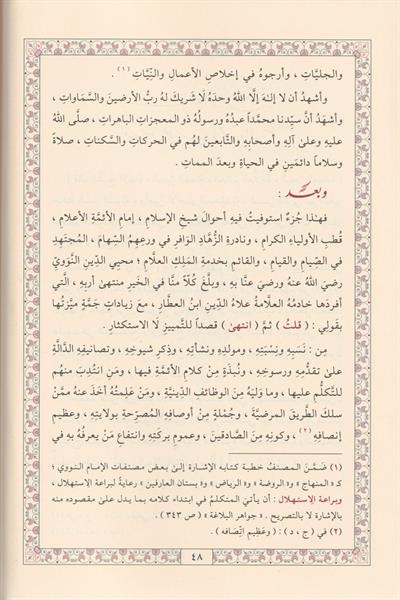 والجليَّاتِ ، وأرجوهُ في إخلاصِ الأعمالِ والنِّيَّاتِ (١) .
وأشهدُ أن لا إلـٰهَ إلَّا اللهُ وحدَهُ لا شريكَ لهُ ربُّ الأرضينَ والسَّماواتِ ،
وأشهَدُ أنَّ سيِّدنا محمَّداً عبدُهُ ورسولُهُ ذو المعجزاتِ الباهراتِ ، صلَّى اللهُ
عليهِ وعلىٰ آلِهِ وأصحابِهِ والتَّابعينَ لهُم في الحركاتِ والسكناتِ ، صلاةً
وسلاماً دائمَينِ في الحياةِ وبعدَ المماتِ .
وبعـد :
فهـٰذا جُزءٌ استوفيتُ فيهِ أحوالَ شيخِ الإسلامِ ، إمامِ الأئمَّةِ الأعلامِ ،
قُطبِ الأولياءِ الكرامِ ، ونادرةِ الزُّهَّادِ الوَافرِ في ورعِهِمُ السِّهامَ ، المجتَهِدِ
في الصِّيامِ والقيامِ ، والقائمِ بخدمةِ المَلِكِ العلَّامِ ؛ محيي الدِّينِ النَّوويِّ
رضيَ اللهُ عنهُ ورضيَ عنَّا بهِ ، وبلَّغَ كُلّاً منَّا في الخيرِ منتهىٰ أربِهِ ، الَّتي
أفردَها خادمُهُ العلَّامةُ علاءُ الدِّينِ ابنُ العطَّارِ ، معَ زياداتٍ جَمَّةٍ ميَّزتُها
بقَولي : ( قلتُ ) ثمَّ ( انتهىٰ ) قصداً للتَّمييزِ لا الاستكثارِ .
مِن : نَسَبِهِ ونِسْبَتِهِ ، ومولدِهِ ونشأتِهِ ، وذِكرِ شيوخِهِ ، وتصانيفِهِ الدَّالَّةِ
علىٰ تقدُّمِهِ ورسوخِهِ ، ونُبذَةٍ مِنْ كلامِ الأئمَّةِ فيها ، ومَنِ انتدَبَ منهُم
للتَّكلُّمِ عليها ، وما وَلِيَهُ مِنَ الوظائفِ الدِّينيَّةِ ، ومَنْ عَلِمتُهُ أخَذَ عنهُ ممَّنْ
سلكَ الطَّريقَ المرضيَّةَ ، وجُملةٍ مِنْ أوصافِهِ المصرِّحةِ بولايتِهِ ، وعظيمِ
إنصافِهِ (٢) ، وكونِهِ مِنَ الصَّادقينَ ، وعمومِ بركتِهِ وانتفاعِ مَنْ يعرفُهُ بهِ في
(١) ضَمَّنَ المصنفُ خطبة كتابه الإشارة إلىٰ بعض مصنفات الإمام النووي ؛
كـ « المنهاج » و« الروضة » و« الرياض » و« بستان العارفين » رعايةً لبراعة الاستهلال ،
وبراعة الاستهلال : أن يأتيَ المتكلمُ في ابتداء كلامه بما يدل علىٰ مقصوده منه
بالإشارة لا بالتصريح . « جواهر البلاغة » ( ص ٣٤٣ ) .
(٢) في ( ج ، د ) : ( وعَظِيم اتِّصافه ) .
٤٨